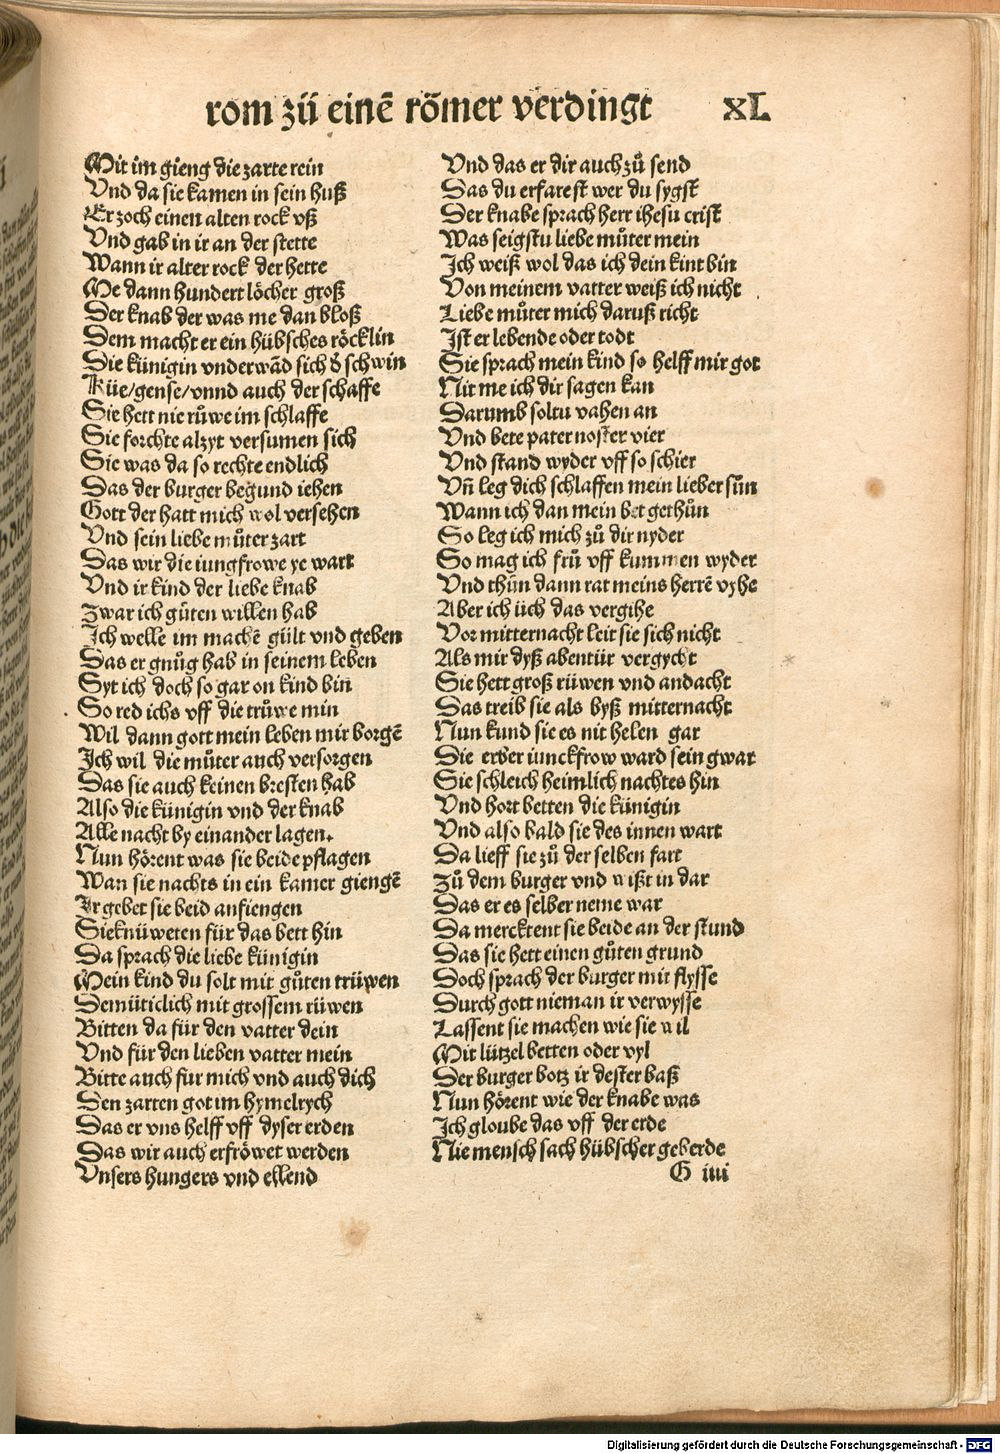 rom zů einē rőmer verdingt xL
Mit im gieng die zarte rein
Vnd da sie kamen in sein huß
Er zoch einen alten rock vß
Vnd gab in ir an der stette
Wann ir alter rock der hette
Me dann hundert lőcher groß
Der knab der was me dan bloß
Dem macht er ein hübsches rőcklin
Die künigin vnderwād sich d̕ schwin
Küe/gense/vnnd auch der schaffe
Sie hett nie růwe im schlaffe
Sie forchte alzyt versumen sich
Sie was da so rechte endlich
Das der burger begund iehen
Gott der hatt mich wol versehen
Vnd sein liebe můter zart
Das wir die iungfrowe ye wart
Vnd ir kind der liebe knab
Zwar ich gůten willen hab
Ich welle im machē gült vnd geben
Das er gnůg hab in seinem leben
Syt ich doch so gar on kind bin
So red ichs vff die trůwe min
Wil dann gott mein leben mir borgē
Ich wil die můter auch versorgen
Das sie auch keinen bresten hab
Also die künigin vnd der knab
Alle nacht by einander lagen.
Nun hőrent was sie beide pflagen
Wan sie nachts in ein kamer giengē
Ir gebet sie beid anfiengen
Sie knüweten für das bett hin
Da sprach die liebe künigin
Mein kind du solt mit gůten trüwen
Demüticlich mit grossem rüwen
Bitten da für den vatter dein
Vnd für den lieben vatter mein
Bitte auch fur mich vnd auch dich
Den zarten got im hymelrych
Das er vns helff vff dyser erden
Das wir auch erfrőwet werden
Vnsers hungers vnd ellend
Vnd das er dir auch zů send
Das du erfarest wer du sygst
Der knabe sprach herr ihesu crist
Was seigstu liebe můter mein
Ich weiß wol das ich dein kint bin
Von meinem vatter weiß ich nicht
Liebe můter mich daruß richt
Ist er lebende oder todt
Sie sprach mein kind so helff mir got
Nit me ich dir sagen kan
Darumb soltu vahen an
Vnd bete pater noster vier
Vnd stand wyder vff so schier
Vñ leg dich schlaffen mein lieber sůn
Wann ich dan mein bet gethůn
So leg ich mich zů dir nyder
So mag ich frů vff kummen wyder
Vnd thůn dann rat meins herrē vyhe
Aber ich üch das vergihe
Vor mitternacht leit sie sich nicht
Als mir dyß abentür vergycht
Sie hett groß rüwen vnd andacht
Das treib sie als byß mitternacht
Nun kund sie es nit helen gar
Die erber iunckfrow ward sein gwar
Sie schleich heimlich nachtes hin
Vnd hort betten die künigin
Vnd also bald sie des innen wart
Da lieff sie zů der selben fart
Zů dem burger vnd wißt in dar
Das er es selber neme war
Da mercktent sie beide an der stund
Das sie hett einen gůten grund
Doch sprach der burger mit flysse
Durch gott nieman ir verwysse
Lassent sie machen wie sie wil
Mit lützel betten oder vyl
Der burger botz ir dester baß
Nun hőrent wie der knabe was
Ich gloube das vff der erde
Nie mensch sach hübscher geberde
G iiii
Digitalisierung gefördert durch die Deutsche Forschungsgemeinschaft - DFG